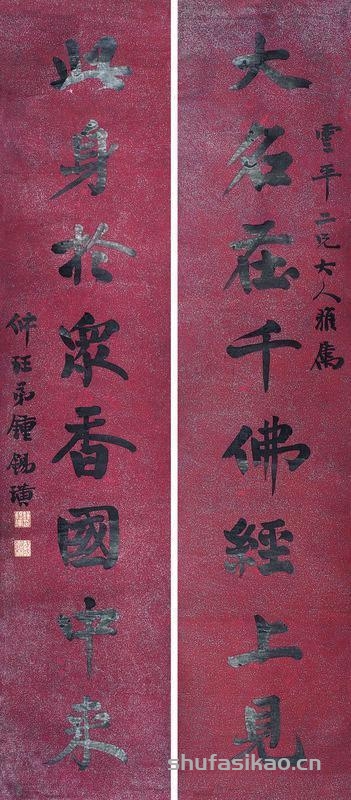 大名在千佛經上見
雪平二兄大人雅屬
此身於眾香國中來
仲班弟鍾錫璜
shufasikao.cn